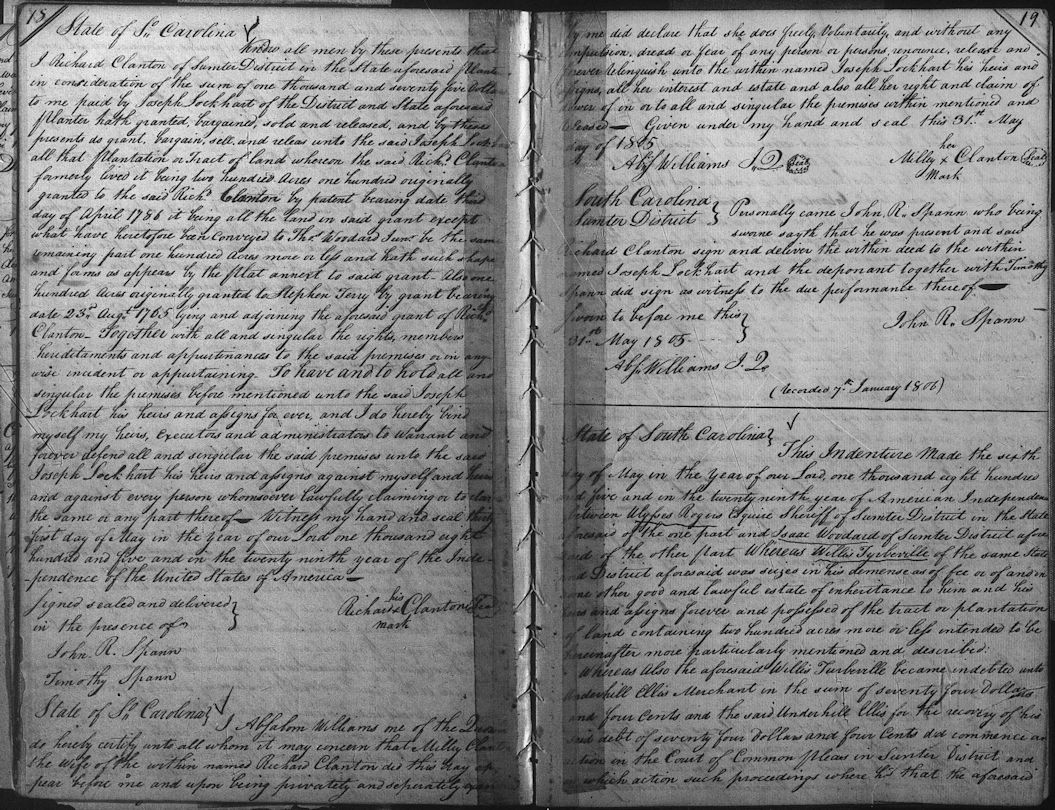 18
State of So. Carolina
Know all men by these presents that
I Richard Clanton of Sumter District in the State aforesaid Planter
in consideration of the sum of one thousand and seventy five Dollars
to me paid by Joseph Lockhart of the District and State aforesaid
Planter hath granted, bargained, sold and released, and by these
presents do grant, bargain, sell and releas unto the said Joseph Lockhart
all that Plantation or Tract of land whereon the said Richd. Clanton
formerly lived it being two hundred Acres one hundred originally
granted to the said Richd. Clanton by patent bearing date third
day of April 1786 it being all the land in said grant except
what have heretofore been conveyed to Thos. Woodard Junr. be the same
remaining part one hundred Acres more or less and hath such shape
and forms as appears by the plat annext to said grant. Also one
hundred Acres originally granted to Stephen Terry by grant bearing
date 23rd. Augt. 1765 lying and adjoining the aforesaid grant of Richd.
Clanton — Together with all and singular the rights, members
hereditaments and appurtenances to the said premises or in any
wise incident or appurtaining — To have and to hold all and
singular the premises before mentioned unto the said Joseph
Lockhart his heirs and assigns for ever, and I do hereby bind
myself my heirs, executors and administrators to warrant and
forever defend all and singular the said premises unto the said
Joseph Lockhart his heirs and assigns against myself and heirs
and against every person whomsoever lawfully claiming or to claim
the same or any part thereof — Witness my hand and seal thirty
first day of May in the year of our Lord one thousand eight
hundred and five and in the twenty ninth year of the Inde-
-pendence of the United States of America —
Signed sealed and delivered
in the presence of
his
Richard x Clanton Seal
mark
John R. Spann
Timothy Spann
State of So. Carolina
I Absalom Williams one of the Quorum
do hereby certify unto all whom it may concern that Milly Clanton
the Wife of the within named Richard Clanton did this day ap-
pear before me and upon being privately and seperately exam
19
by me did declare that she does freely, Voluntarily, and without any
compulsion, dread or fear of any person or persons, renounce, release and
forever Relinguish unto the within named Joseph Lockhart his heirs and
assigns, all her interest and estate and also all her right and claim of
Dower of in or to all and singular the premises within mentioned and
released — Given under my hand and seal this 31st. May
day of 1805
Abs. Williams J. Q. Seal
her
Milly x Clanton Seal
Mark
South Carolina
Sumter District
Personally came John R. Spann who being
swone sayth that he was present and saw
Richard Clanton sign and deliver the within deed to the within
names Joseph Lockhart and the deponant together with Timothy
Spann did sign as witness to the due performance thereof —
Sworn to before me this
31st. May 1805
John R. Spann
Abs. Williams J. Q.
(recorded 7th. January 1806)
State of South Carolina
This Indenture Made the sixth
day of May in the Year of our Lord, one thousand eight hundred
and five and in the twenty ninth year of American Independence
between Ulysses Rogers Esquire Sheriff of Sumter District in the State
aforesaid of the one part and Isaac Woodard of Sumter District afore
said of the other part Whereas Willis Turbeville of the same State
and District aforesaid was seizes in his demense as of fee or of and in
some other good and lawful estate of inheritance to him and his
heirs and assigns forever and possessed of the tract or plantation
of land containing two hundred acres more or less intended to be
hereinafter more particularly mentioned and described:
Whereas Also the aforesaid Willis Turbeville became indebted unto
Underhill Ellis Merchant in the sum of seventy four Dollars
and four Cents and the said Underhill Ellis for the recovry of his
said debt of seventy four Dollars and four Cents did commence an
action in the Court of Common Pleas in Sumter District and
in which action such proceedings where had that the aforesaid